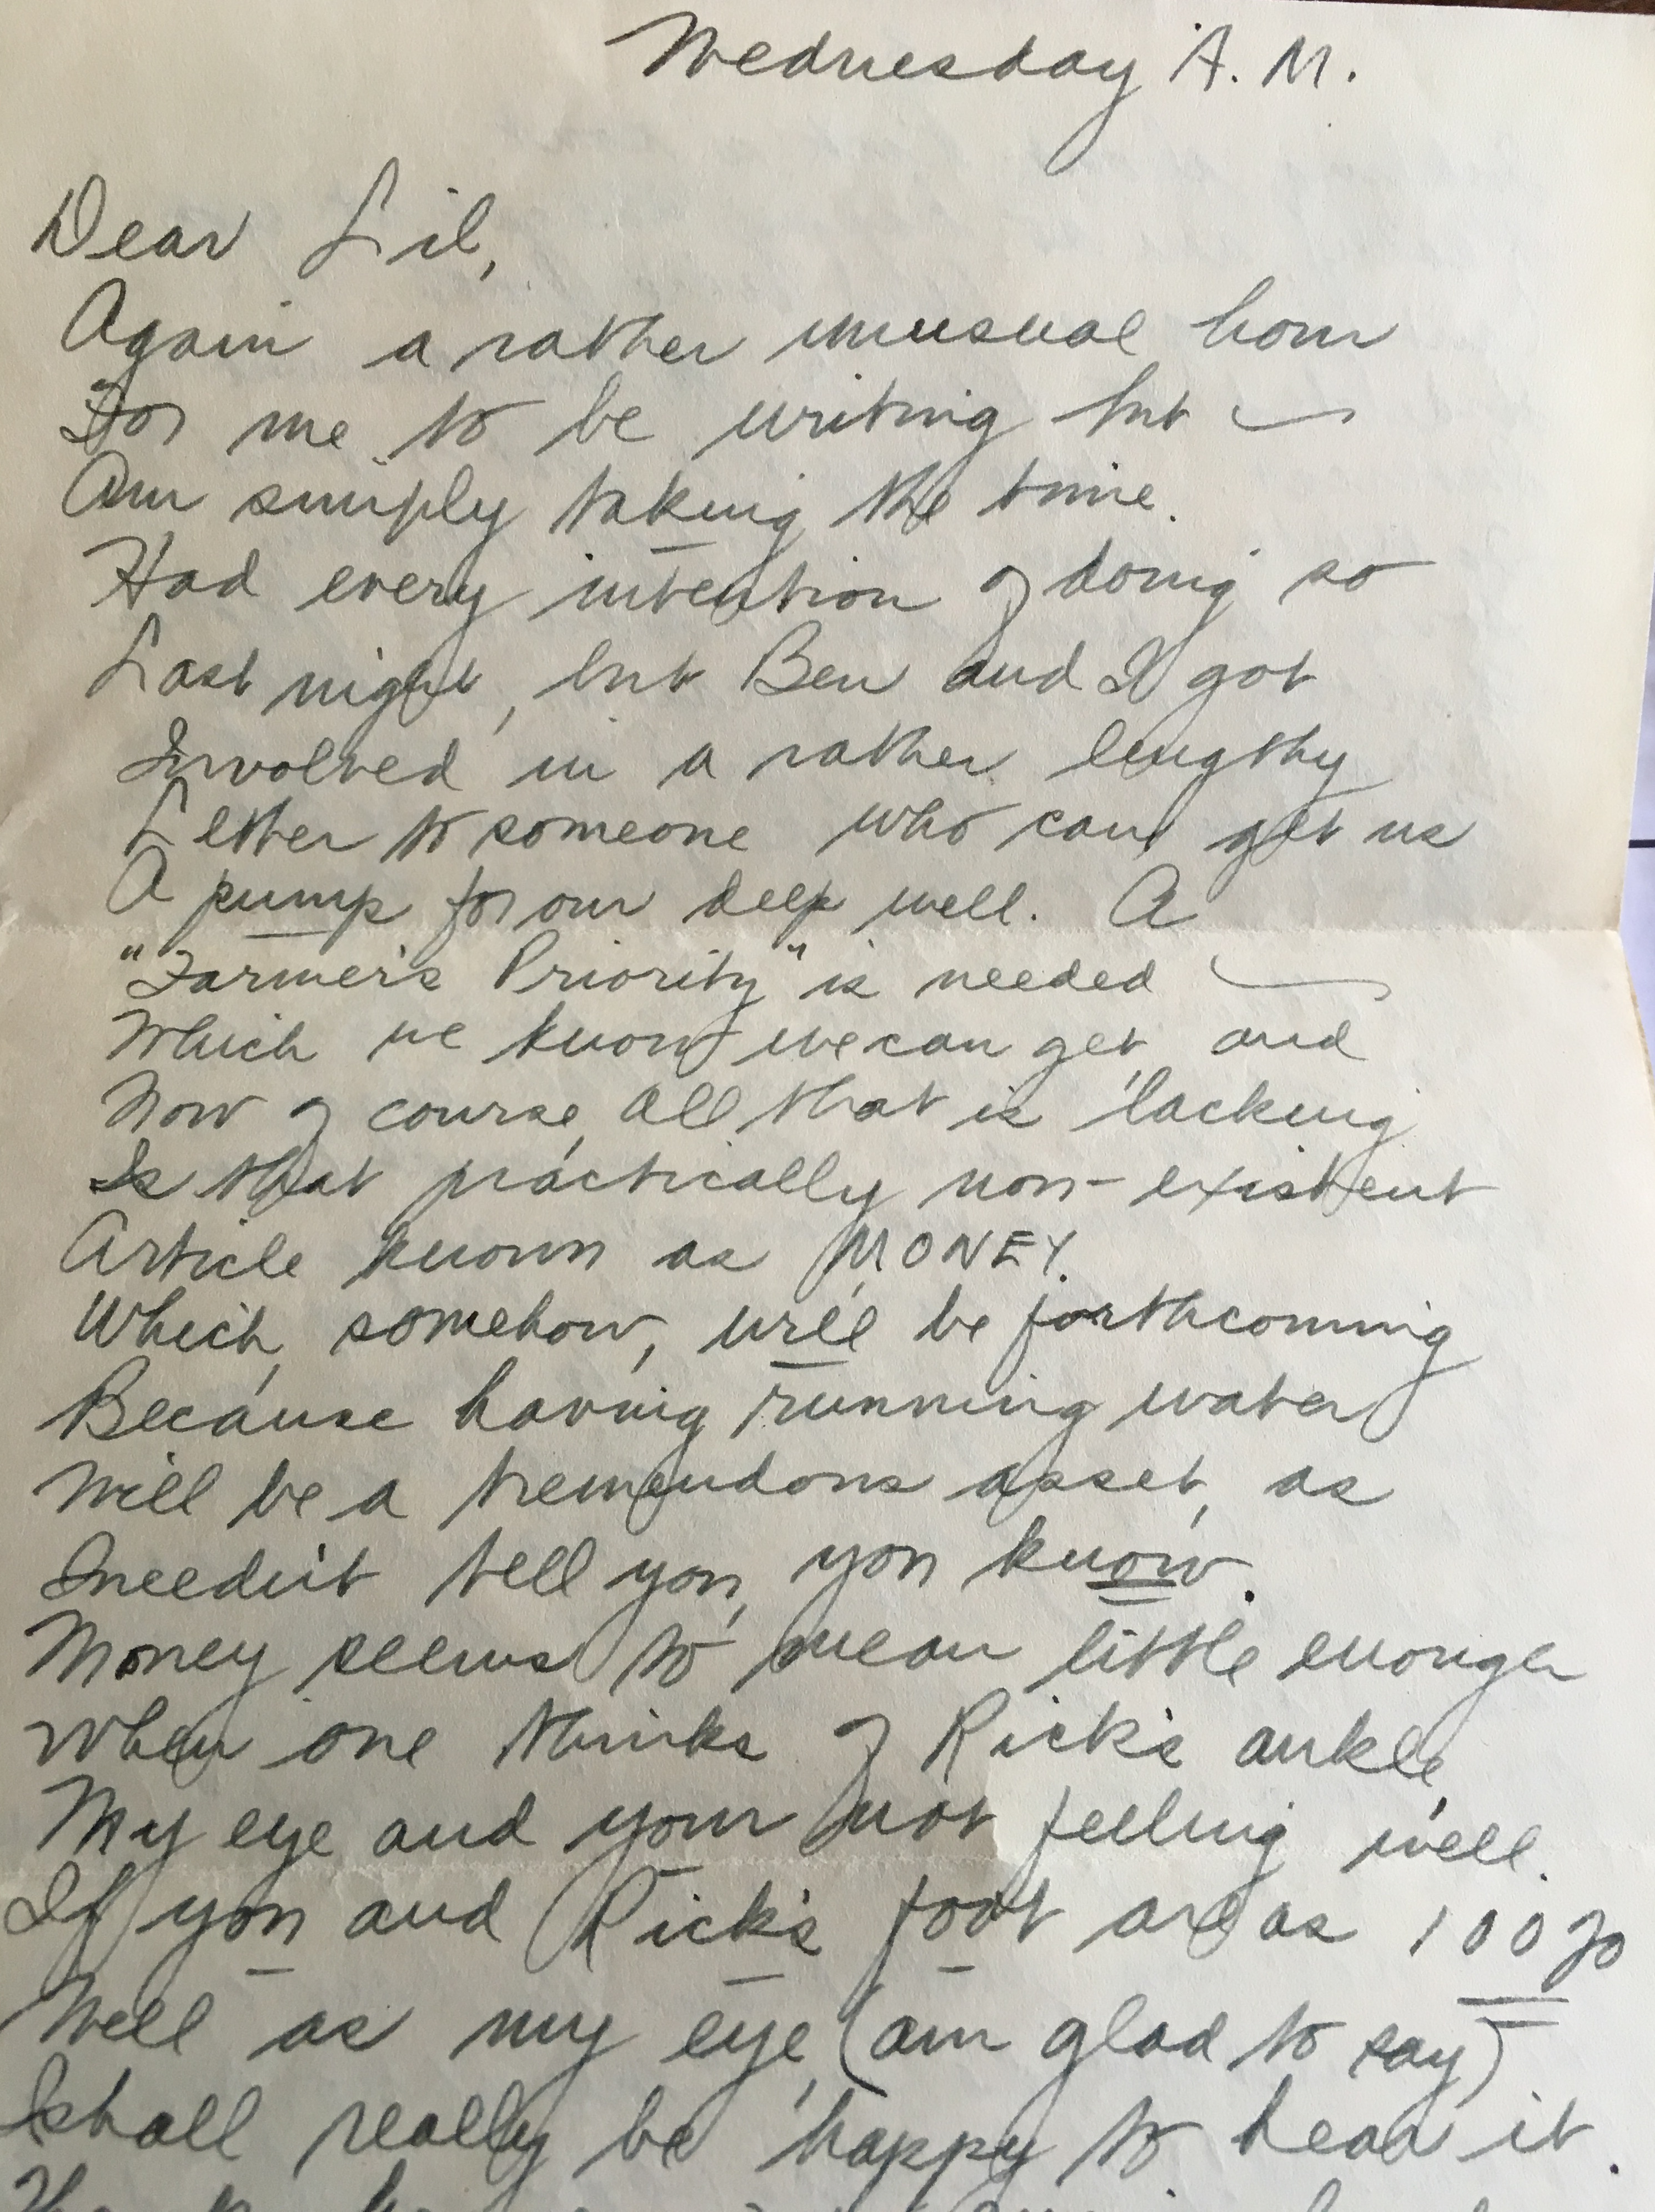 Wednesday A.M.
Dear Lil,
Again a rather unusual hour
For me to be writing but —
Am simply taking the time.
Had every intention of doing so
Last night, but Ben and I got
Involved in a rather lengthy
Letter to someone who can get us
A pump for our deep well. A
"Farmer's Priority" is needed —
Which we know we can get, and
Now of course, all that is lacking
Is that practically non-existent
Article known as MONEY.
Which, somehow, will be forthcoming
Because having running water
Will be a tremendous asset, as
I needn't tell you, you know.
Money seems to mean little enough
When one thinks of Rick's ankle,
My eye and your not feeling well.
If you and Rick's foot are as 100%
Well as my eye, (am glad to say)
I shall really be happy to hear it.